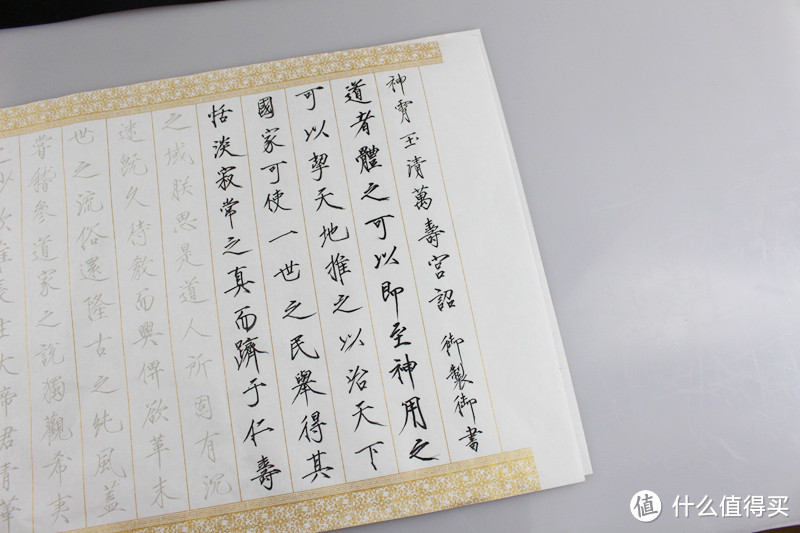 神霄玉清萬壽宮詔 御製御書
道者體之可以即至神用之
可以挈天地推之以治天下
國家可使一世之民舉得其
恬淡寂常之真而躋于仁壽
之域朕思是道人所固有沉
迷既久待教而興俾欲革末
世之流俗還隆古之純風蓋
嘗稽參道家之說獨觀希夷
之妙欽惟長生大帝君青華
值 什么值得买